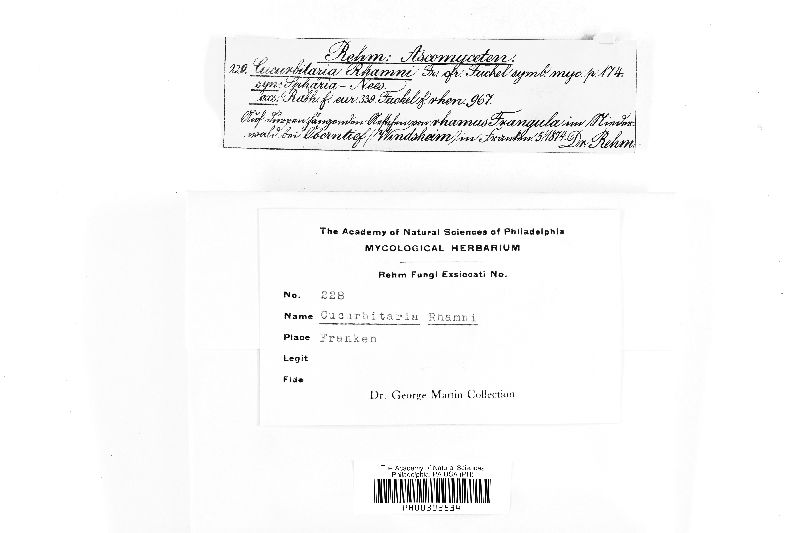 Rehm: Ascomyceten.
Cucurbitaria Rhamni Fr. cfr. Fuckel symb. myc. p. 174.
syn: Sphaeria – Nees.
exs: Rabh. f. eur. 339. Fuckel f. rhen. 967.
Auf dürren hängenden Aestchen von rhamus Frangula im
wald bei Oberntief (Windsheim) in Franken. 5/1874. Dr. Rehm.
The Academy of Natural Sciences of Philadelphia
MYCOLOGICAL HERBARIUM
Rehm Fungi Exsiccati No.
No. 228
Name Cucurbitaria Rhamni
Place Franken
Legit
Fide
Dr. George Martin Collection
The Academy of Natural Sciences
Philadelphia, PA USA (PH)